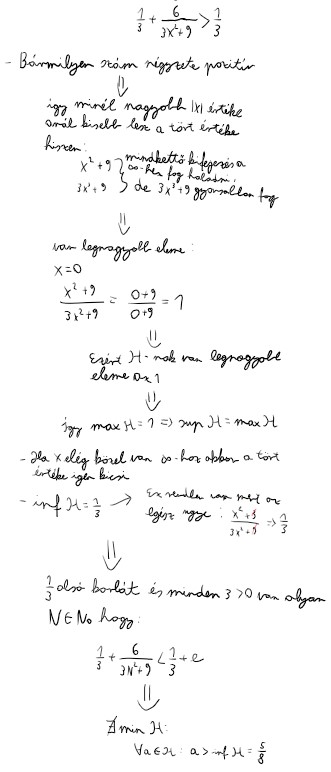 1/3 + 6/(3x²+9) > 1/3
- Bármilyen szám négyzete pozitív
⇓
így minél nagyobb |x| értéke
annál kisebb lesz a tört értéke
hiszen:
x²+9 } mindkettő kifejezés a
∞-hez fog haladni,
3x²+9 } de 3x²+9 gyorsabban fog
⇓
van legnagyobb eleme:
x=0
(x²+9)/(3x²+9) = (0+9)/(0+9) = 1
⇓
Ezért H-nak van legnagyobb
eleme az 1
⇓
így max H = 1 => sup H = max H
- Ha x elég közel van ∞-hez akkor a tört
értéke igen kicsi
- inf H = 1/3 → Ez rendben van mert az
egész ugye: (x²+9)/(3x²+9) => 1/3
⇓
1/3 alsó korlát és minden 3>0 van olyan
N∈N₀ hogy:
1/3 + 6/(3N²+9) < 1/3 + e
⇓
∄ min H:
∀a∈H: a > inf H = 5/8